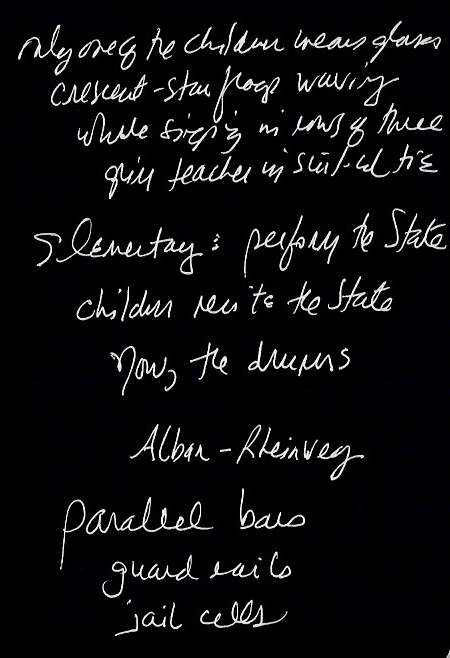 only one of the children wears glasses
crescent-star flags waving
while singing in rows of three
grim teacher in suit and tie
Elementary: perform the State
children recite the State
Now, the drums
Alban-Rheinweg
parallel bars
guard rails
jail cells